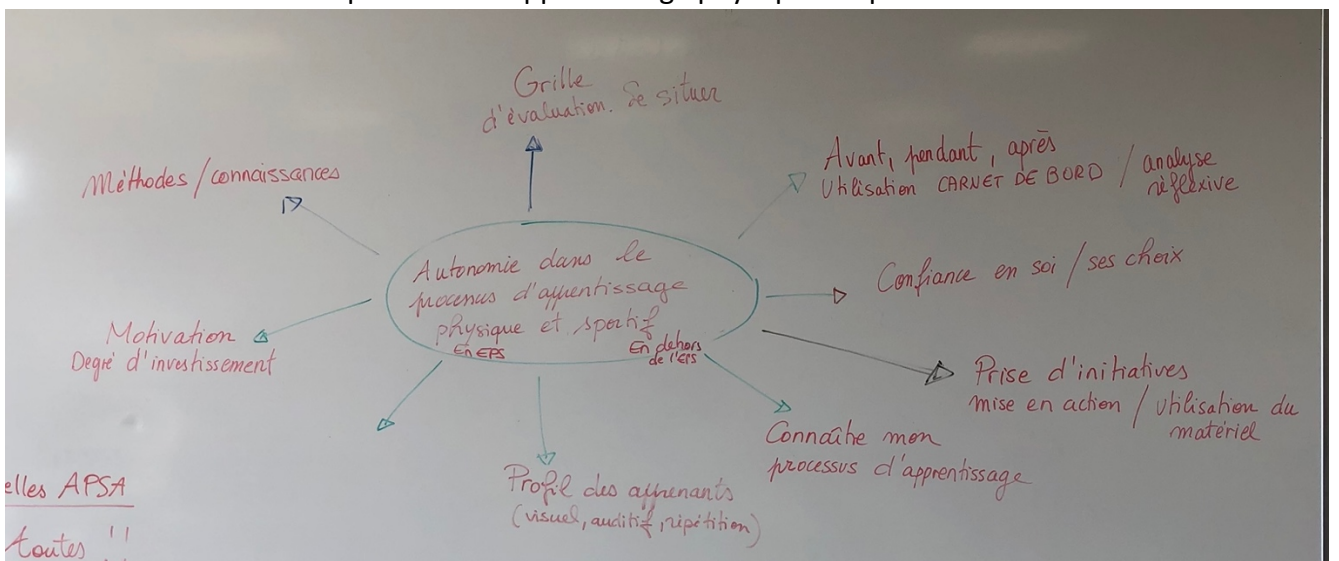 Grille
d'évaluation. Se situer
Méthodes / connaissances
Avant, pendant, après
Utilisation CARNET DE BORD / analyse
réflexive
Autonomie dans le
processus d'apprentissage
physique et sportif
En EPS
En dehors
de l'EPS
Confiance en soi / ses choix
Motivation
Degré d'investissement
Prise d'initiatives
mise en action / Utilisation du
matériel
Connaître mon
processus d'apprentissage
Profil des apprenants
(visuel, auditif, répétition)
elles APSA
toutes !!